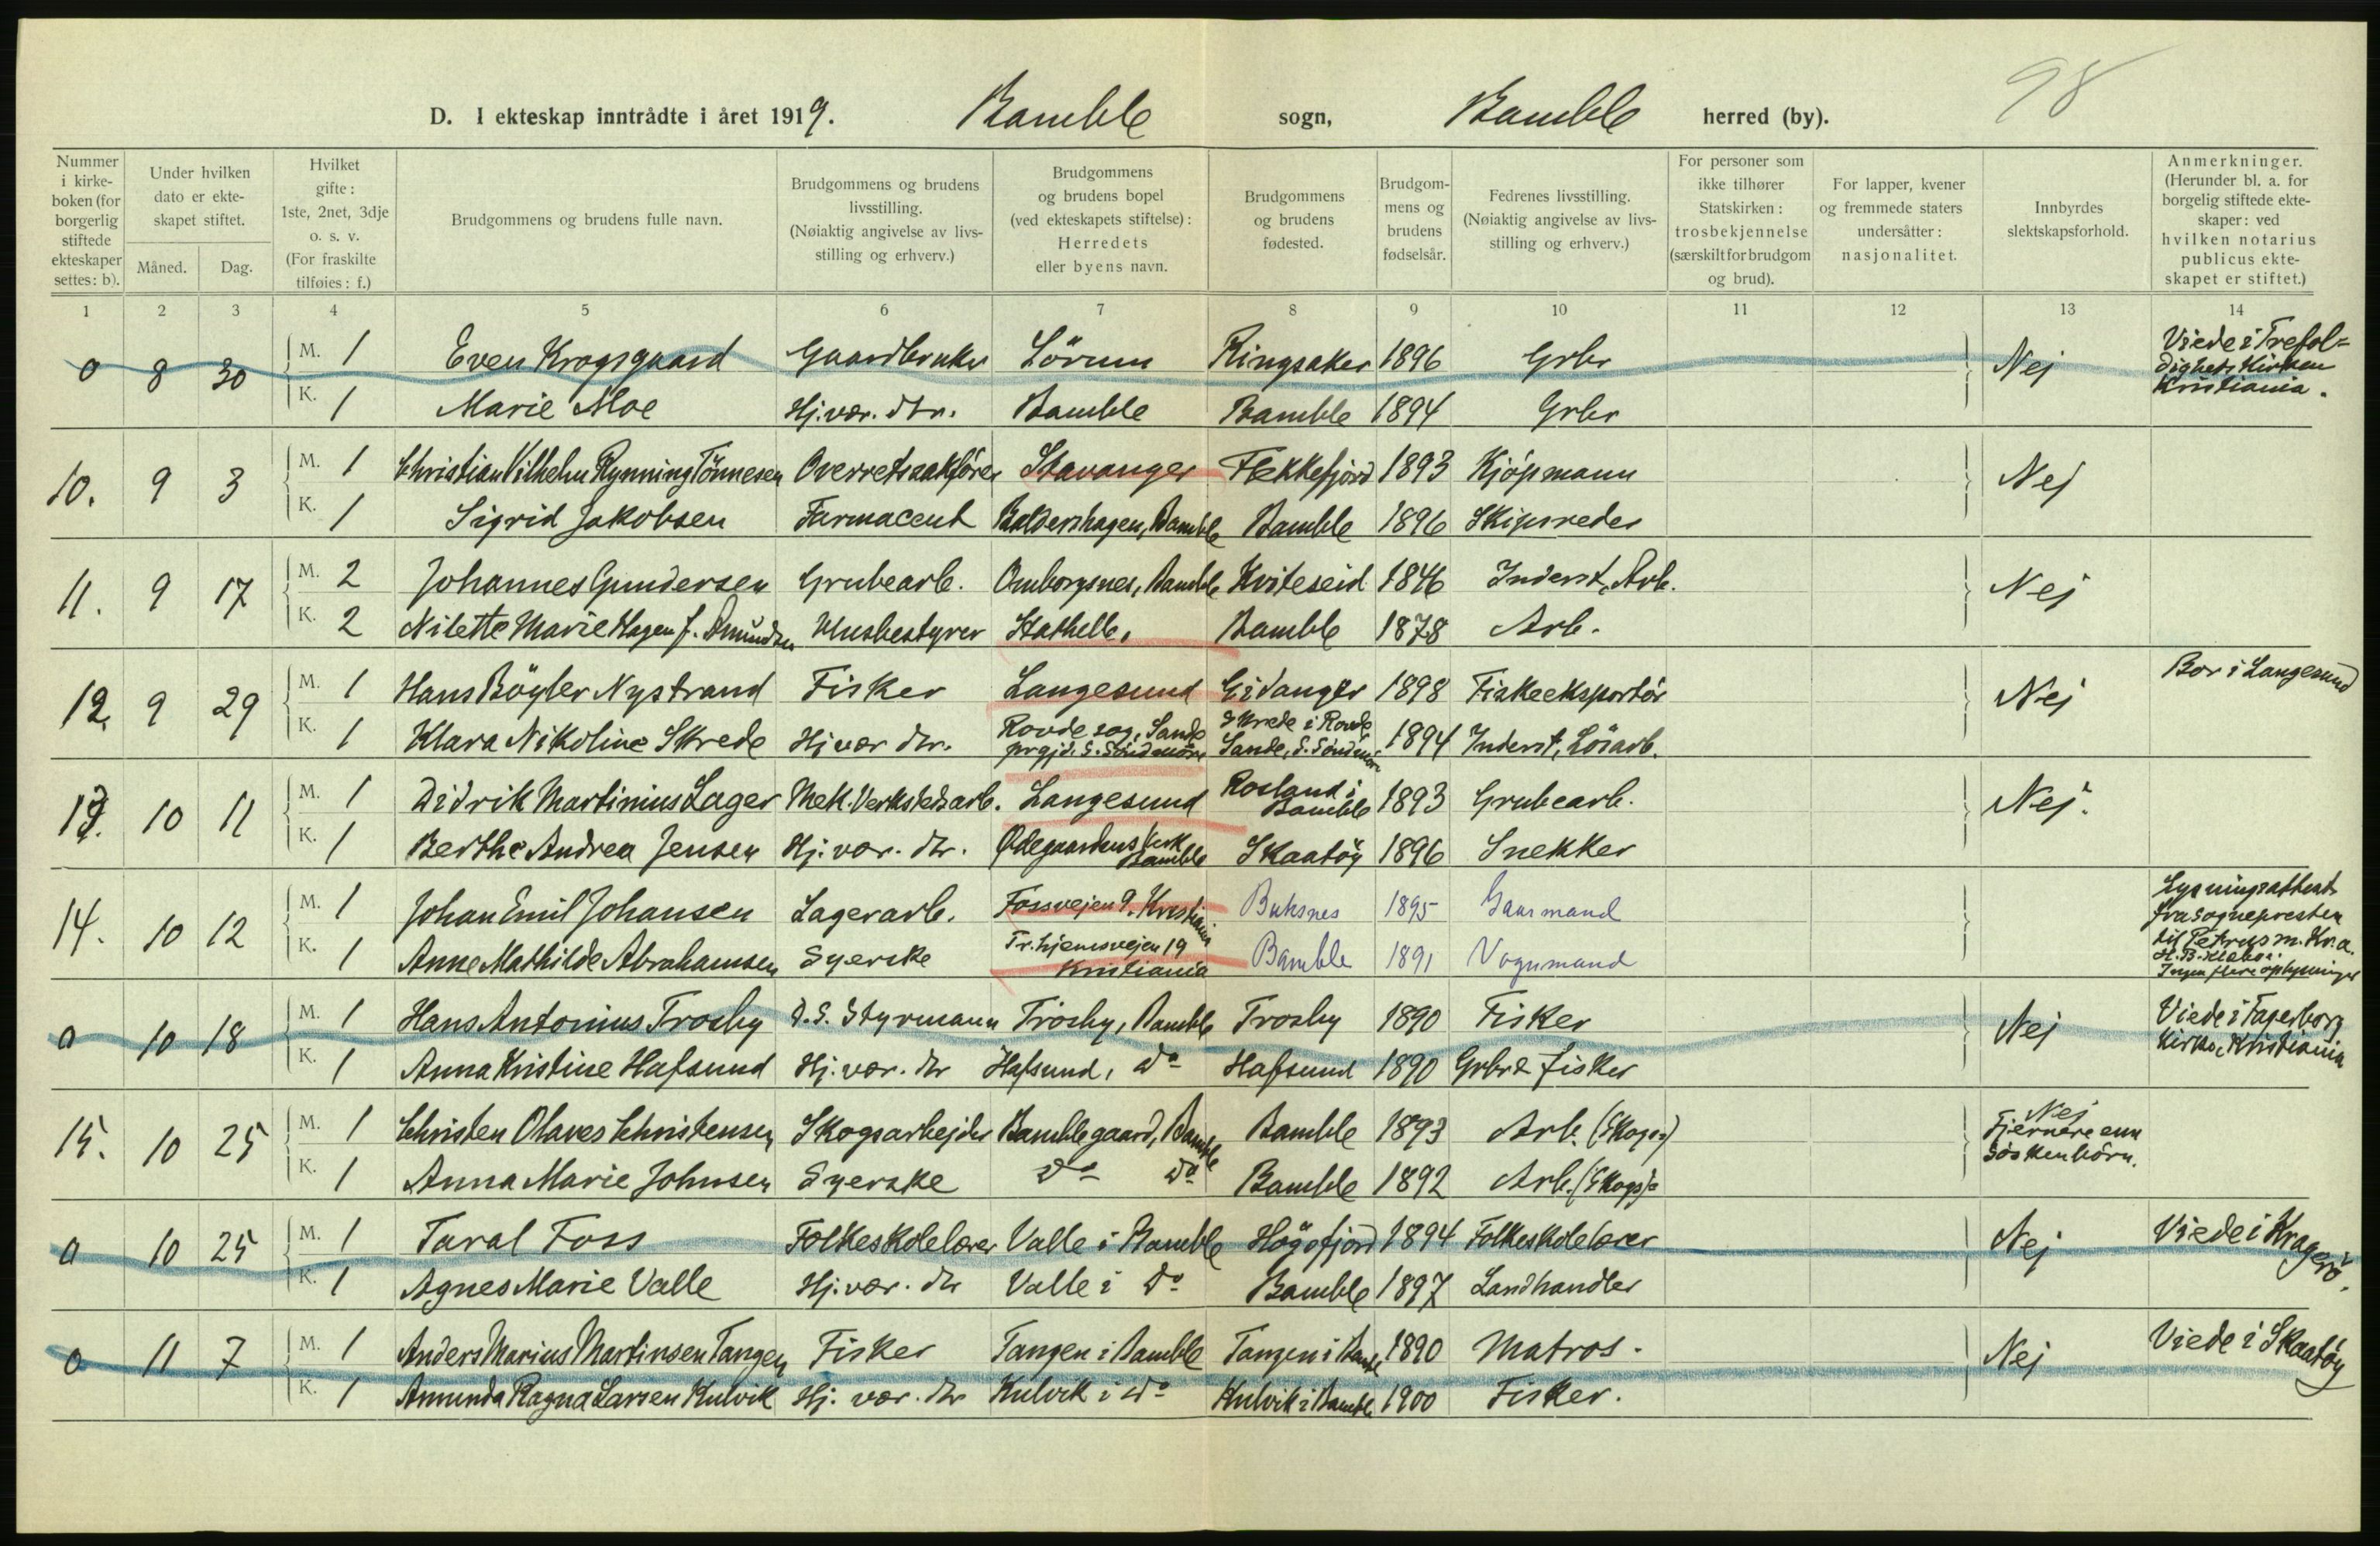 98
D. I ekteskap inntrådte i året 1919. Bamble sogn, Bamble herred (by).
Nummer i kirke-boken (for borgerlig stiftede ekteskaper settes: b).
Under hvilken dato er ekte-skapet stiftet.
Måned. Dag.
Hvilket gifte: 1ste, 2net, 3dje o. s. v. (For fraskilte tilføies: f.)
Brudgommens og brudens fulle navn.
Brudgommens og brudens livsstilling. (Nøiaktig angivelse av livs-stilling og erhverv.)
Brudgommens og brudens bopel (ved ekteskapets stiftelse): Herredets eller byens navn.
Brudgommens og brudens fødested.
Brudgom-mens og brudens fødselsår.
Fedrenes livsstilling. (Nøiaktig angivelse av livs-stilling og erhverv.)
For personer som ikke tilhører Statskirken: trosbekjennelse (særskilt for brudgom og brud).
For lapper, kvener og fremmede staters undersåtter: nasjonalitet.
Innbyrdes slektskapsforhold.
Anmerkninger. (Herunder bl. a. for borgelig stiftede ekte-skaper: ved hvilken notarius publicus ekte-skapet er stiftet.)
1 2 3 4 5 6 7 8 9 10 11 12 13 14
0 8 30 M. 1 Even Krogsgaard Gaardbruker Lörum Ringsaker 1896 Grbr Nej Viede i Trefol=dighets Kirken Kristiania.
K. 1 Marie Moe Hj. vær. dtr. Bamble Bamble 1894 Grbr
10. 9 3 M. 1 Christian Vilhelm Rynning Tönnesen Overretssakförer Stavanger Flekkefjord 1893 Kjöpmann Nej
K. 1 Sigrid Jakobsen Farmaceut Baldershagen, Bamble Bamble 1896 Skipsreder
11. 9 17 M. 2 Johannes Gundersen Grubearb. Omborgsnes, Bamble Kviteseid 1846 Inderst, Arb. Nej
K. 2 Nilette Marie Hagen f. Amundsen Husbestyrer Stathelle. Bamble 1878 Arb.
12. 9 29 M. 1 Hans Böyler Nystrand Fisker Langesund Eidanger 1898 Fiskeeksportör Nej Bor i Langesund
K. 1 Klara Nikoline Skrede Hj vær dtr. Rovde sog, Sande prgjd. S. Söndmöre Skrede i Rovde, Sande, S. Söndmöre 1894 Inderst, Lösarb.
13. 10 11 M. 1 Didrik Martinius Lager Mek. Verkstedsarb. Langesund Rosland i Bamble 1893 Grubearb. Nej.
K. 1 Berthe Andrea Jensen Hj. vær. dtr. Ødegaardens Verk Bamble Skaatöy 1896 Snekker
14. 10 12 M. 1 Johan Emil Johansen Lagerarb. Fossvejen 9. Kristiania Buksnes 1895 Gaarmand Lysningsattest fra sognepresten til Petrus m. Kr.a. H.B. Klæboe. Ingen flere oplysninger
K. 1 Anne Mathilde Abrahamsen Syerske Tr.hjemsvejen 19 Kristiania Bamble 1891 Vognmand
0 10 18 M. 1 Hans Antonius Trosby D.S. Styrmann Trosby, Bamble Trosby 1890 Fisker Nej Viede i Fagerborg Kirke, Kristiania
K. 1 Anna Kristine Hafsund Hj. vær. dtr Hafsund, do Hafsund 1890 Grbr & fisker
15. 10 25 M. 1 Christen Olaves Christensen Skogsarbejder Bamblegaard, Bamble Bamble 1893 Arb. (Skogs=) Nej Fjernere enn Söskenbörn.
K. 1 Anna Marie Johnsen Syerske do do Bamble 1892 Arb. (Skogs)=
0 10 25 M. 1 Taral Foss Folkeskolelærer Valle i Bamble Högsfjord 1894 Folkeskolelærer Nej Viede i Kragerö.
K. 1 Agnes Marie Valle Hj. vær. dtr Valle i do Bamble 1897 Landhandler
0 11 7 M. 1 Anders Marius Martinsen Tangen Fisker Tangen i Bamble Tangen i Bamble 1890 Matros. Nej Viede i Skaatöy
K. 1 Amunda Ragna Larsen Kulvik Hj. vær. dtr Kulvik i do Kulvik i Bamble 1900 Fisker.